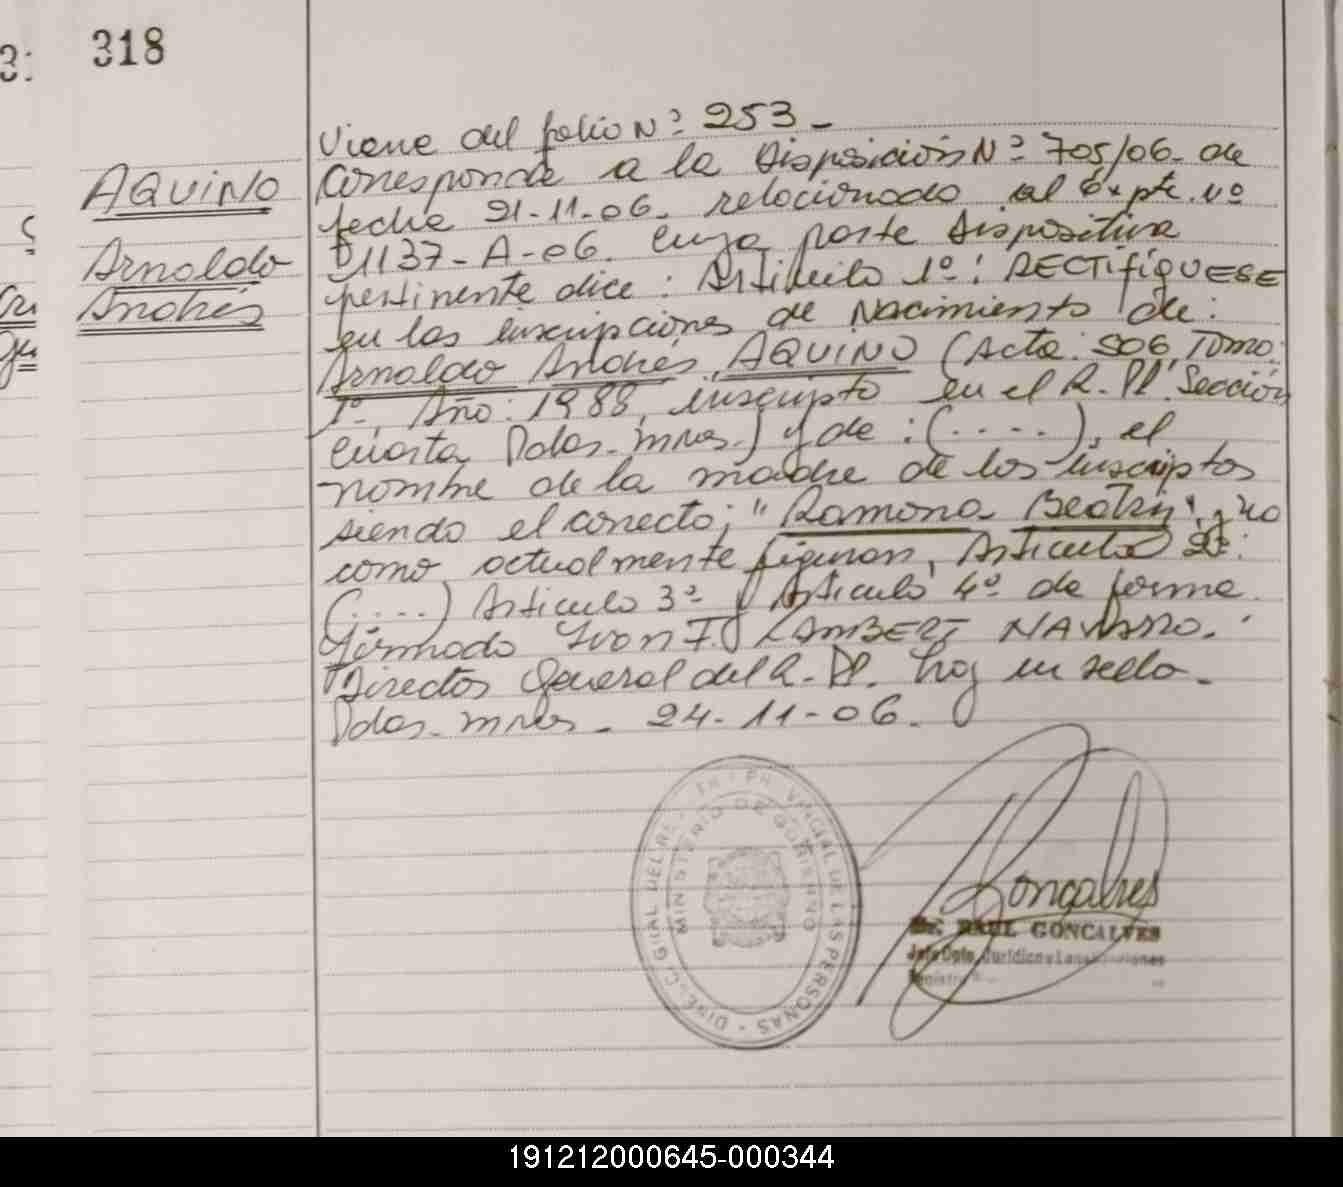 318
AQUINO
Arnoldo
Andrés
Viene del folio Nº 253 -
Corresponde a la Disposición Nº 705/06. de
fecha 21-11-06. relacionado al Expte. Nº
1137-A-06. cuya parte dispositiva
pertinente dice: Artículo 1º: RECTIFIQUESE
en las inscripciones de Nacimiento de:
Arnoldo Andrés, AQUINO (Acta: 506, Tomo:
1º, Año: 1988, inscripto en el R. P. Sección
Cuarta Pdas. Mnes.) y de: (....), el
nombre de la madre de los inscriptos
siendo el correcto; "Ramona Beatriz" y no
como actualmente figuran, Artículo 2º:
(....) Artículo 3º y Artículo 4º de forma.
Firmado Ivon F. LAMBERT NAVARRO.
Director General del R. P. hay un sello.
Pdas. Mnes. 24-11-06.
MINISTERIO DE GOBIERNO
PROVINCIAL DE LAS PERSONAS
Goncalves
Dr. RAUL GONCALVES
Jefe Dpto. Jurídico
191212000645-000344